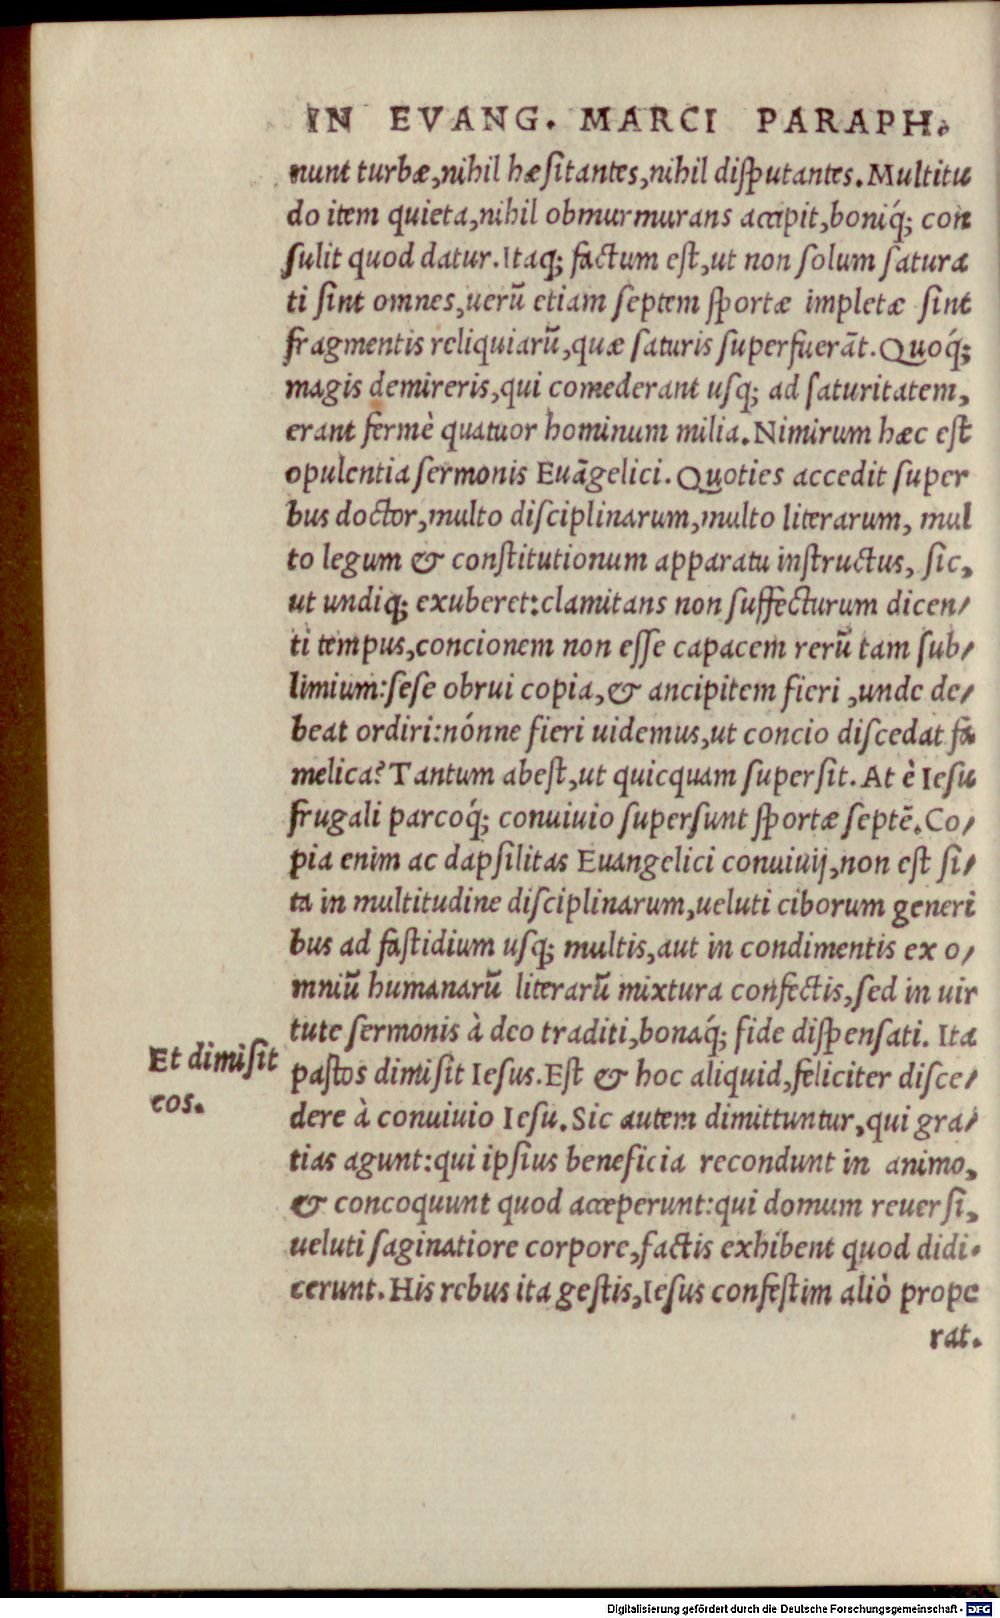 IN EVANG. MARCI PARAPH.
nunt turbæ,nihil hæſitantes,nihil diſputantes.Multitu
do item quieta,nihil obmurmurans accipit,boniq́; con
ſulit quod datur.Itaq; factum eſt,ut non ſolum ſatura
ti ſint omnes,uerũ etiam ſeptem ſportæ impletæ ſint
fragmentis reliquiarũ,quæ ſaturis ſuperfuerãt.Quoq́;
magis demireris,qui comederant uſq; ad ſaturitatem,
erant fermè quatuor hominum milia.Nimirum hæc eſt
opulentia ſermonis Euãgelici.Quoties accedit ſuper
bus doctor,multo diſciplinarum,multo literarum, mul
to legum & conſtitutionum apparatu inſtructus, ſic,
ut undiq; exuberet:clamitans non ſuffecturum dicen/
ti tempus,concionem non eſſe capacem rerũ tam ſub/
limium:ſeſe obrui copia,& ancipitem fieri ,unde de/
beat ordiri:nónne fieri uidemus,ut concio diſcedat fa
melica? Tantum abeſt,ut quicquam ſuperſit.At è Ieſu
frugali parcoq́; conuiuio ſuperſunt ſportæ ſeptẽ.Co/
pia enim ac dapſilitas Euangelici conuiuij,non eſt ſi/
ta in multitudine diſciplinarum,ueluti ciborum generi
bus ad faſtidium uſq; multis,aut in condimentis ex o/
mniũ humanarũ literarũ mixtura confectis,ſed in uir
tute ſermonis à deo traditi,bonaq́; fide diſpenſati. Ita
Et dimiſit
eos.
paſtos dimiſit Ieſus.Eſt & hoc aliquid,feliciter diſce/
dere à conuiuio Ieſu.Sic autem dimittuntur,qui gra/
tias agunt:qui ipſius beneficia recondunt in animo,
& concoquunt quod acceperunt:qui domum reuerſi,
ueluti ſaginatiore corpore,factis exhibent quod didi-
cerunt.His rebus ita geſtis,Ieſus confeſtim aliò prope
rat.
Digitalisierung gefördert durch die Deutsche Forschungsgemeinschaft - DFG